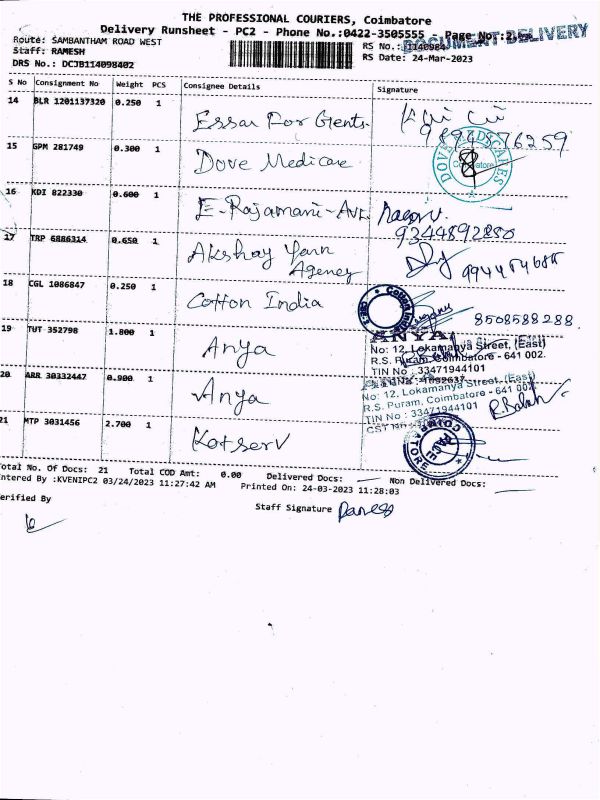 THE PROFESSIONAL COURIERS, Coimbatore
Delivery Runsheet - PC2 - Phone No.:0422-3505555 - Page No.:2
DOCUMENT DELIVERY
Route: SAMBANTHAM ROAD WEST
RS No.: 1140984
Staff: RAMESH
RS Date: 24-Mar-2023
DRS No.: DCJB114098402
S No Consignment No Weight PCS Consignee Details Signature
14 BLR 1201137320 0.250 1 Essar For Gents.
15 GPM 281749 0.300 1 Dove Medicare
DOVE MEDICARES
16 KDI 822330 0.600 1 E-Rajamani-Ave.
9344892880
17 TRP 6886314 0.650 1 Akshay Yarn Agency
18 CGL 1086847 0.250 1 Cotton India
Cotton India
8508588288.
19 TUT 352798 1.800 1 Anya
ANYA
No: 12, Lokamanya Street, (East)
R.S. Puram, Coimbatore - 641 002.
TIN No : 33471944101
20 ARR 30332447 0.900 1 Anya
No: 12, Lokamanya Street, (East)
R.S. Puram, Coimbatore - 641 002
TIN No : 33471944101
CST No
21 MTP 3031456 2.700 1 Kotserv
Total No. Of Docs: 21 Total COD Amt: 0.00 Delivered Docs: Non Delivered Docs:
Entered By :KVENIPC2 03/24/2023 11:27:42 AM Printed On: 24-03-2023 11:28:03
Verified By
Staff Signature Ramesh